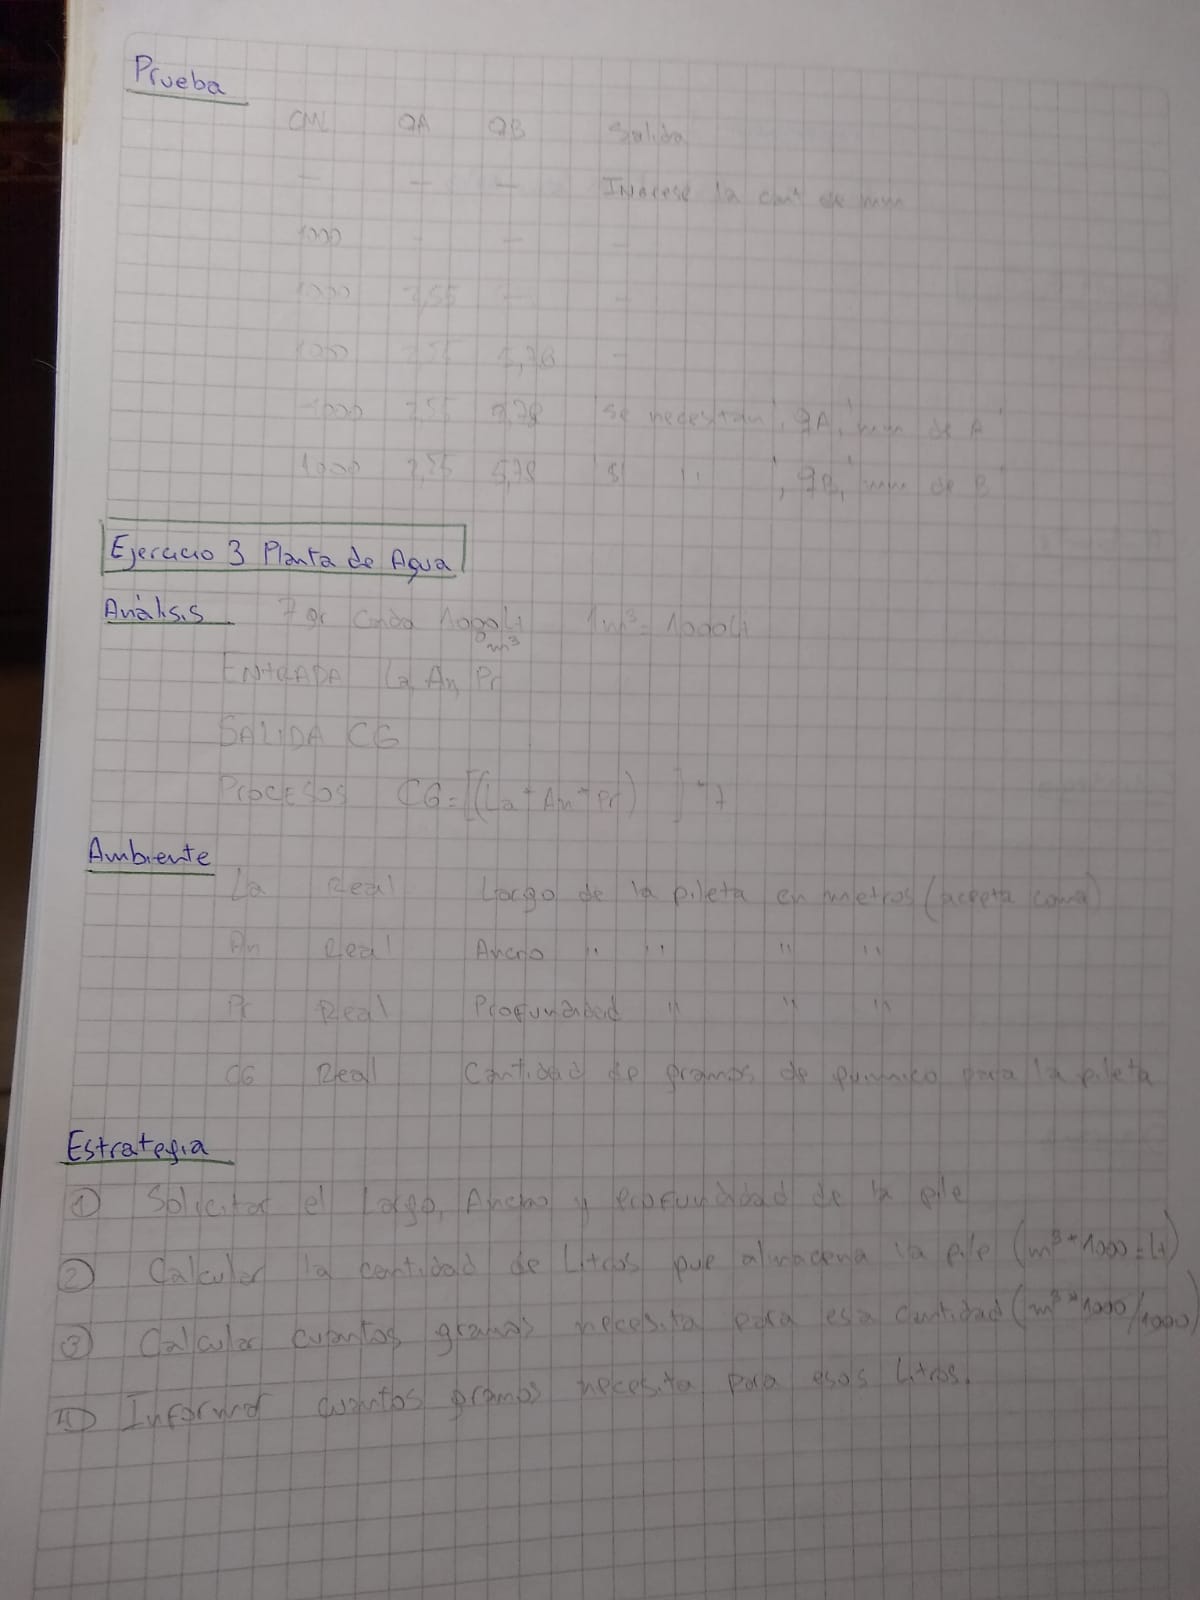 Prueba
CM QA QB Salida
— — — Ingrese la cant de mm
1000 - — -
1000 7,55 — -
1000 7,55 5,78 -
1000 7,55 5,78 "se necesitan", qA, "mm de A"
1000 7,55 5,78 " " ", qB, "mm de B"
Ejercicio 3 Planta de Agua
Análisis 7 gr cada 1000 Lt 1m³ = 1000 Lt
m³
ENTRADA La, An, Pr
SALIDA CG
PROCESOS CG = [(La * An * Pr) ] * 7
Ambiente
La Real Largo de la pileta en metros (acepta coma)
An Real Ancho " " " "
Pr Real Profundidad " " "
CG Real Cantidad de gramos de quimico para la pileta
Estrategia
① Solicitar el Largo, Ancho y profundidad de la pile
② Calcular la cantidad de Litros que almacena la pile (m³ * 1000 = Lt)
③ Calcular cuantos gramos necesita para esa cantidad (m³ * 1000/1000)
④ Informar cuantos gramos necesita para esos Litros.